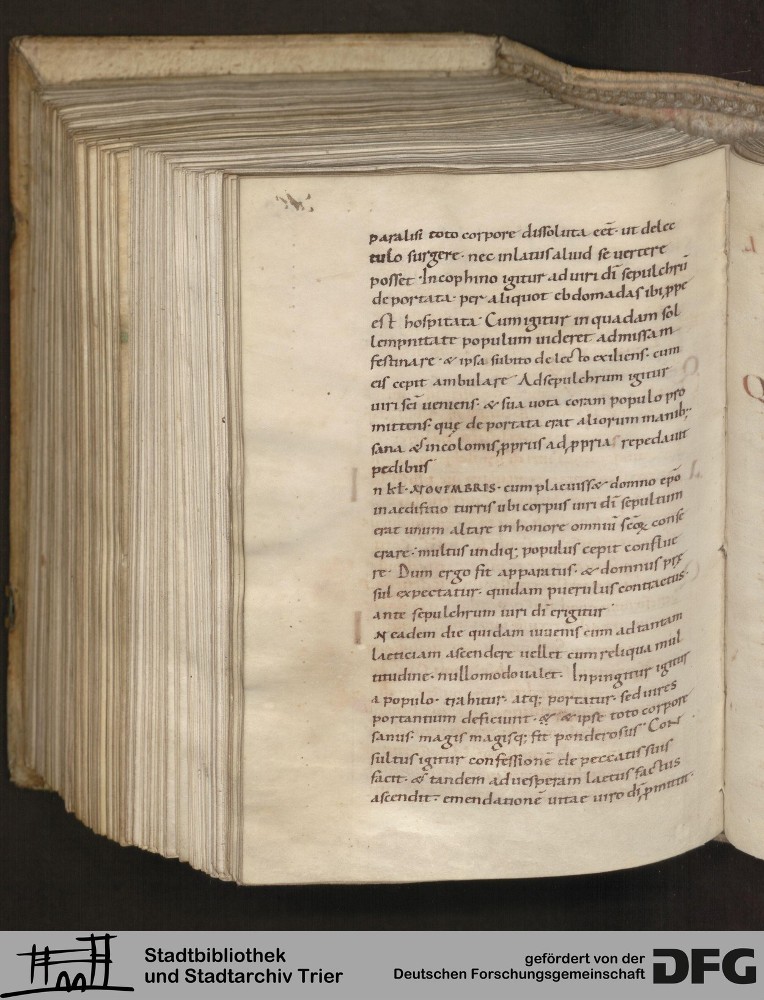 paralisi toto corpore dissoluta eēt · ut de lec
tulo surgere · nec in latus aliud se vertere
posset · In cophino igitur ad viri dī sepulchrū
deportata per aliquot ebdomadas ibi ꝓpe
est hospitata · Cum igitur in quadam sol
lempnitate populum videret ad missam
festinare · & ipsa subito de lecto exiliens · cum
eis cepit ambulare · Ad sepulchrum igitur
viri sc̄i veniens · & sua vota coram populo pro
mittens · quę deportata erat aliorum manib;
sana & incolomis ꝓpriis ad ꝓpria repedavit
pedibus
I n kł · NOVEMBRIS · cum placuiss& domno ep̄o
in aedificio turris ubi corpus viri dī sepultum
erat unum altare in honore omniū sc̄oꝝ conse
crare · multus undiq; populus cepit conflue
re · Dum ergo fit apparatus · & domnus prę
sul expectatur · quidam puerulus contractus
ante sepulchrum viri dī erigitur
I N eadem die quidam iuvenis cum ad tantam
laeticiam ascendere vellet cum reliqua mul
titudine · nullomodo valet · Inpingitur igitur
a populo · trahitur · atq; portatur · sed vires
portantium deficiunt · & & ipse toto corpore
sanus · magis magisq; fit ponderosus · Con
sultus igitur confessionē de peccatis suis
facit · & tandem ad vesperam laetus factus
ascendit · emendationē vitae viro dī ꝓmittit ·
Stadtbibliothek
und Stadtarchiv Trier
gefördert von der
Deutschen Forschungsgemeinschaft
DFG